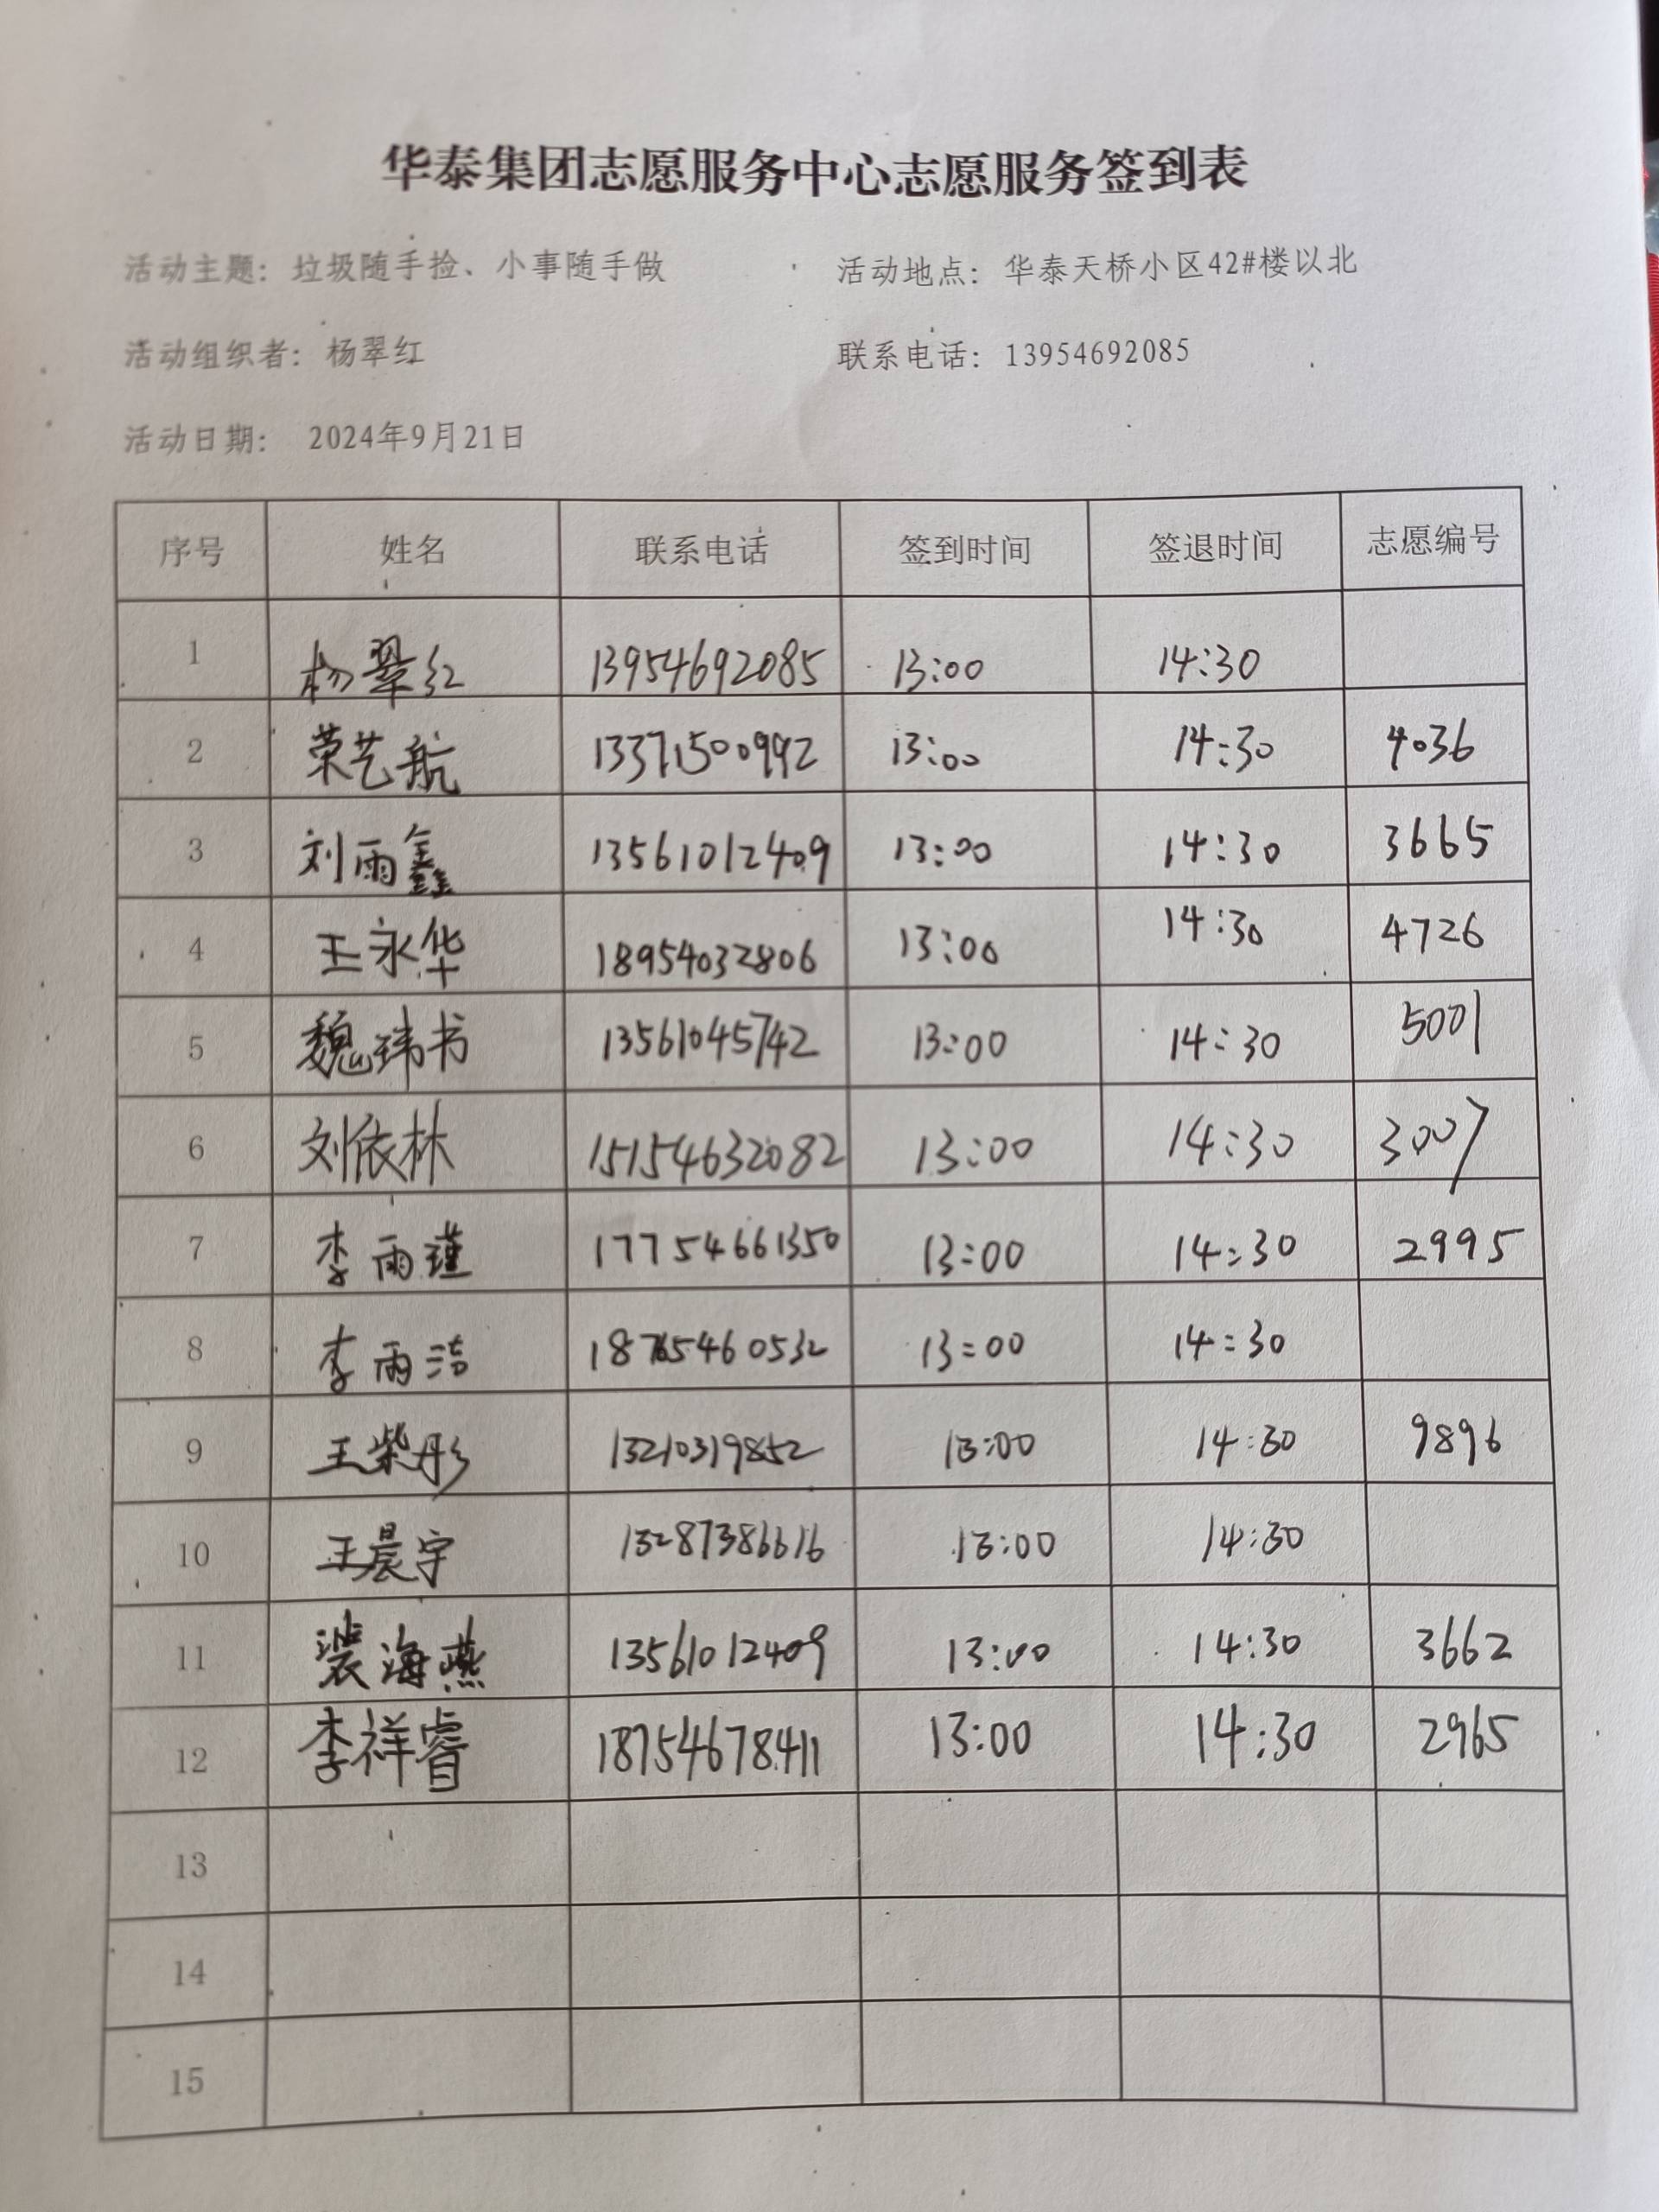 华泰集团志愿服务中心志愿服务签到表
活动主题：垃圾随手捡、小事随手做 活动地点：华泰天桥小区42#楼以北
活动组织者：杨翠红 联系电话：13954692085
活动日期： 2024年9月21日
序号 姓名 联系电话 签到时间 签退时间 志愿编号
1 杨翠红 13954692085 13:00 14:30
2 荣艺航 13371500992 13:00 14:30 4036
3 刘雨鑫 13561012409 13:00 14:30 3665
4 王永华 18954032806 13:00 14:30 4726
5 魏玮书 13561045742 13:00 14:30 5001
6 刘依林 15154632082 13:00 14:30 3007
7 李雨瑾 17754661350 13:00 14:30 2995
8 李雨洁 18765460532 13:00 14:30
9 王紫彤 13210319852 13:00 14:30 9896
10 王晨宇 13287386616 13:00 14:30
11 裴海燕 13561012409 13:00 14:30 3662
12 李祥睿 18754678411 13:00 14:30 2965
13
14
15